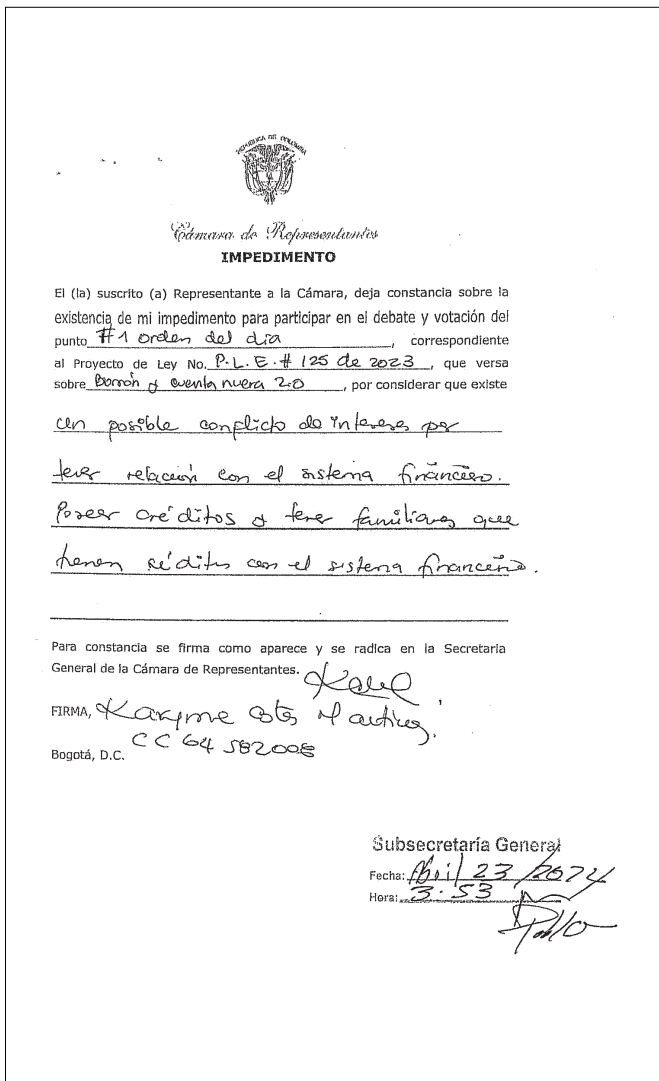 REPUBLICA DE COLOMBIA
Cámara de Representantes
IMPEDIMENTO
El (la) suscrito (a) Representante a la Cámara, deja constancia sobre la
existencia de mi impedimento para participar en el debate y votación del
punto #1 orden del dia, correspondiente
al Proyecto de Ley No. P.L.E. # 125 de 2023, que versa
sobre Borrón y cuenta nueva 2.0, por considerar que existe
un posible conflicto de intereses por
tener relación con el sistema financiero.
Poseer créditos y tener familiares que
tienen créditos con el sistema financiero.
Para constancia se firma como aparece y se radica en la Secretaria
General de la Cámara de Representantes.
FIRMA, Karyme Cotes Martínez
CC 64 582008
Bogotá, D.C.
Subsecretaría General
Fecha: Abril 23/2024
Hora: 3:53
Pablo